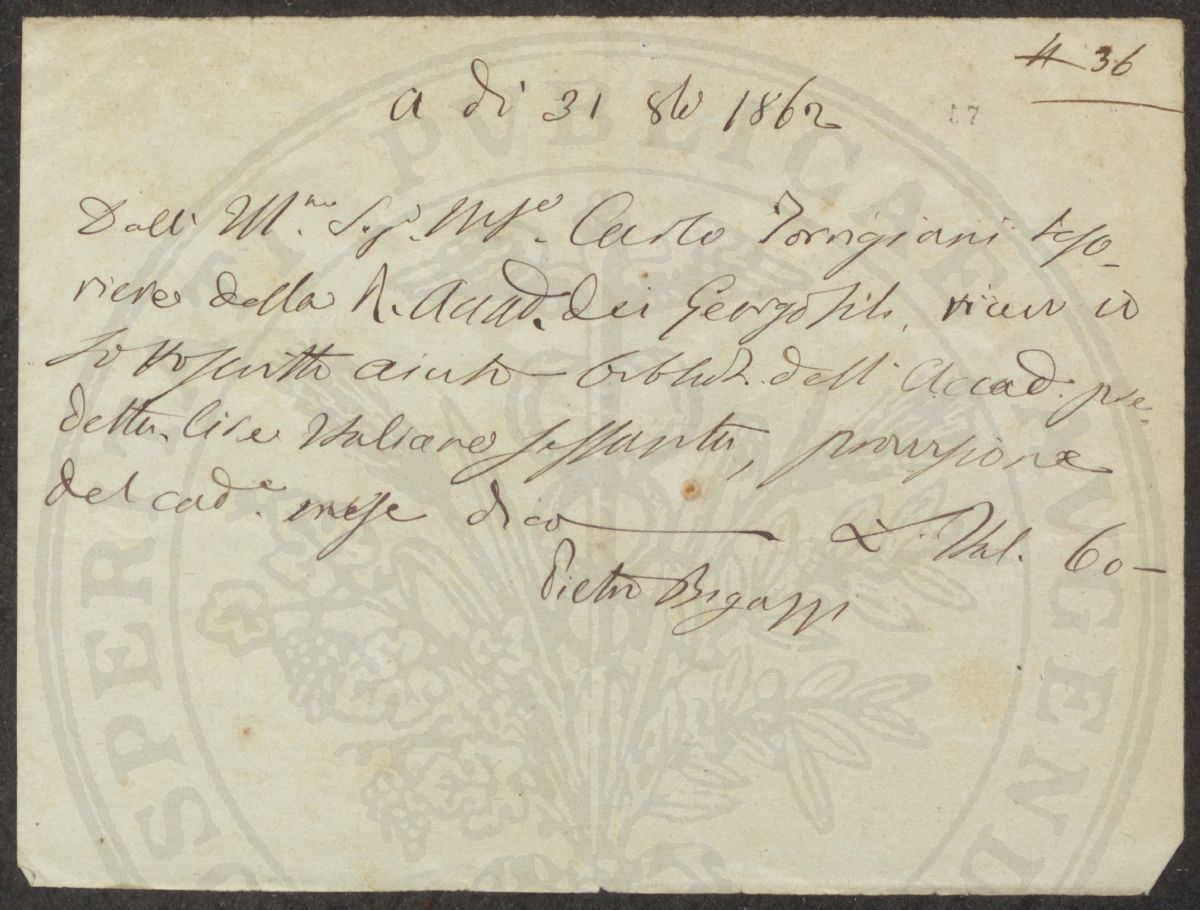 36
a dì 31 8bre 1862
17
Dall' Ill.mo Sig. March.e Carlo Torrigiani teso-
riere della R. Accad. dei Georgofili, ricevo io
sottoscritto aiuto bibliot. dell' Accad. pre-
detta, lire Italiane sessanta, provvisione
del cad.e mese dico L. Ital. 60-
Pietro Bigazzi
PROSPERITATI PVBLICAE AVGENDAE